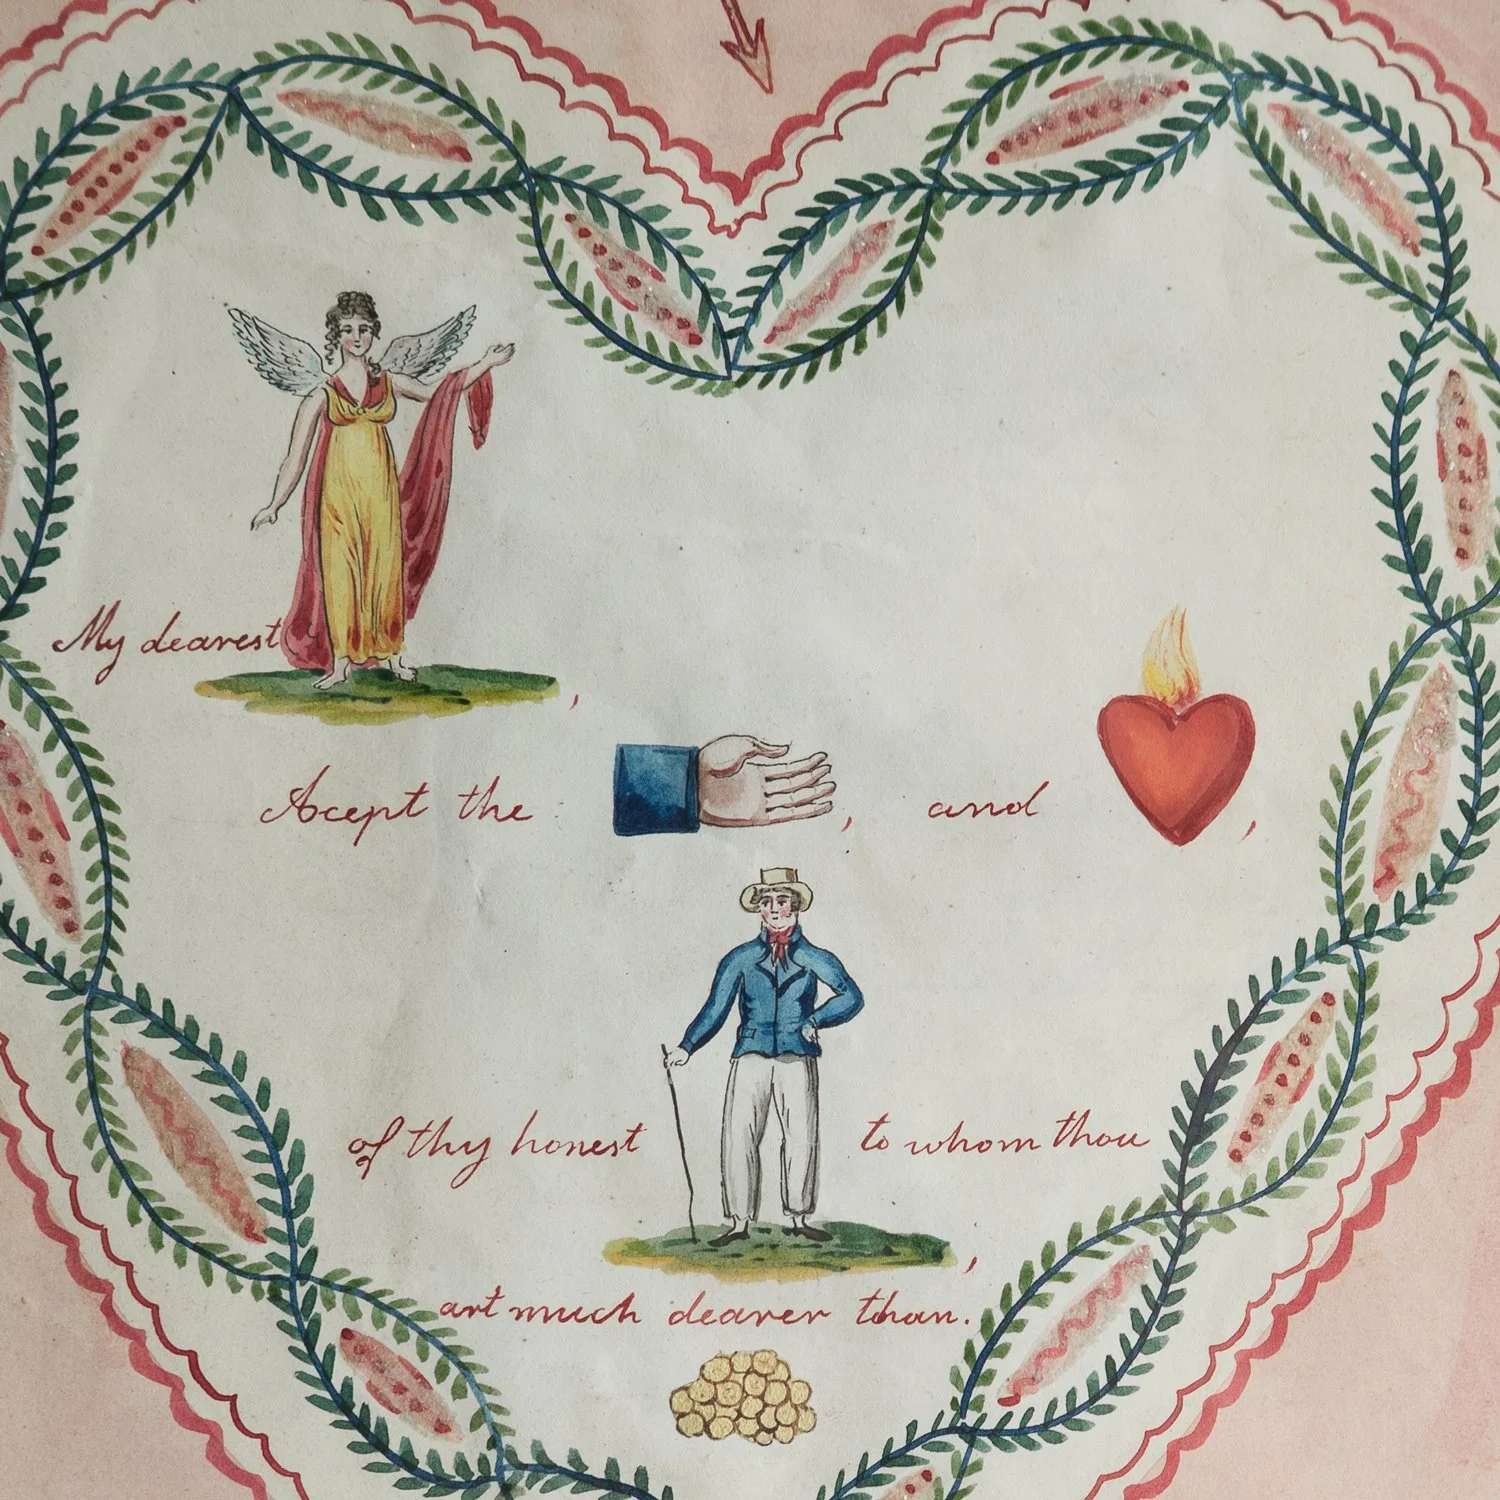 My dearest,
Acept the, and,
of thy honest to whom thou,
art much dearer than.